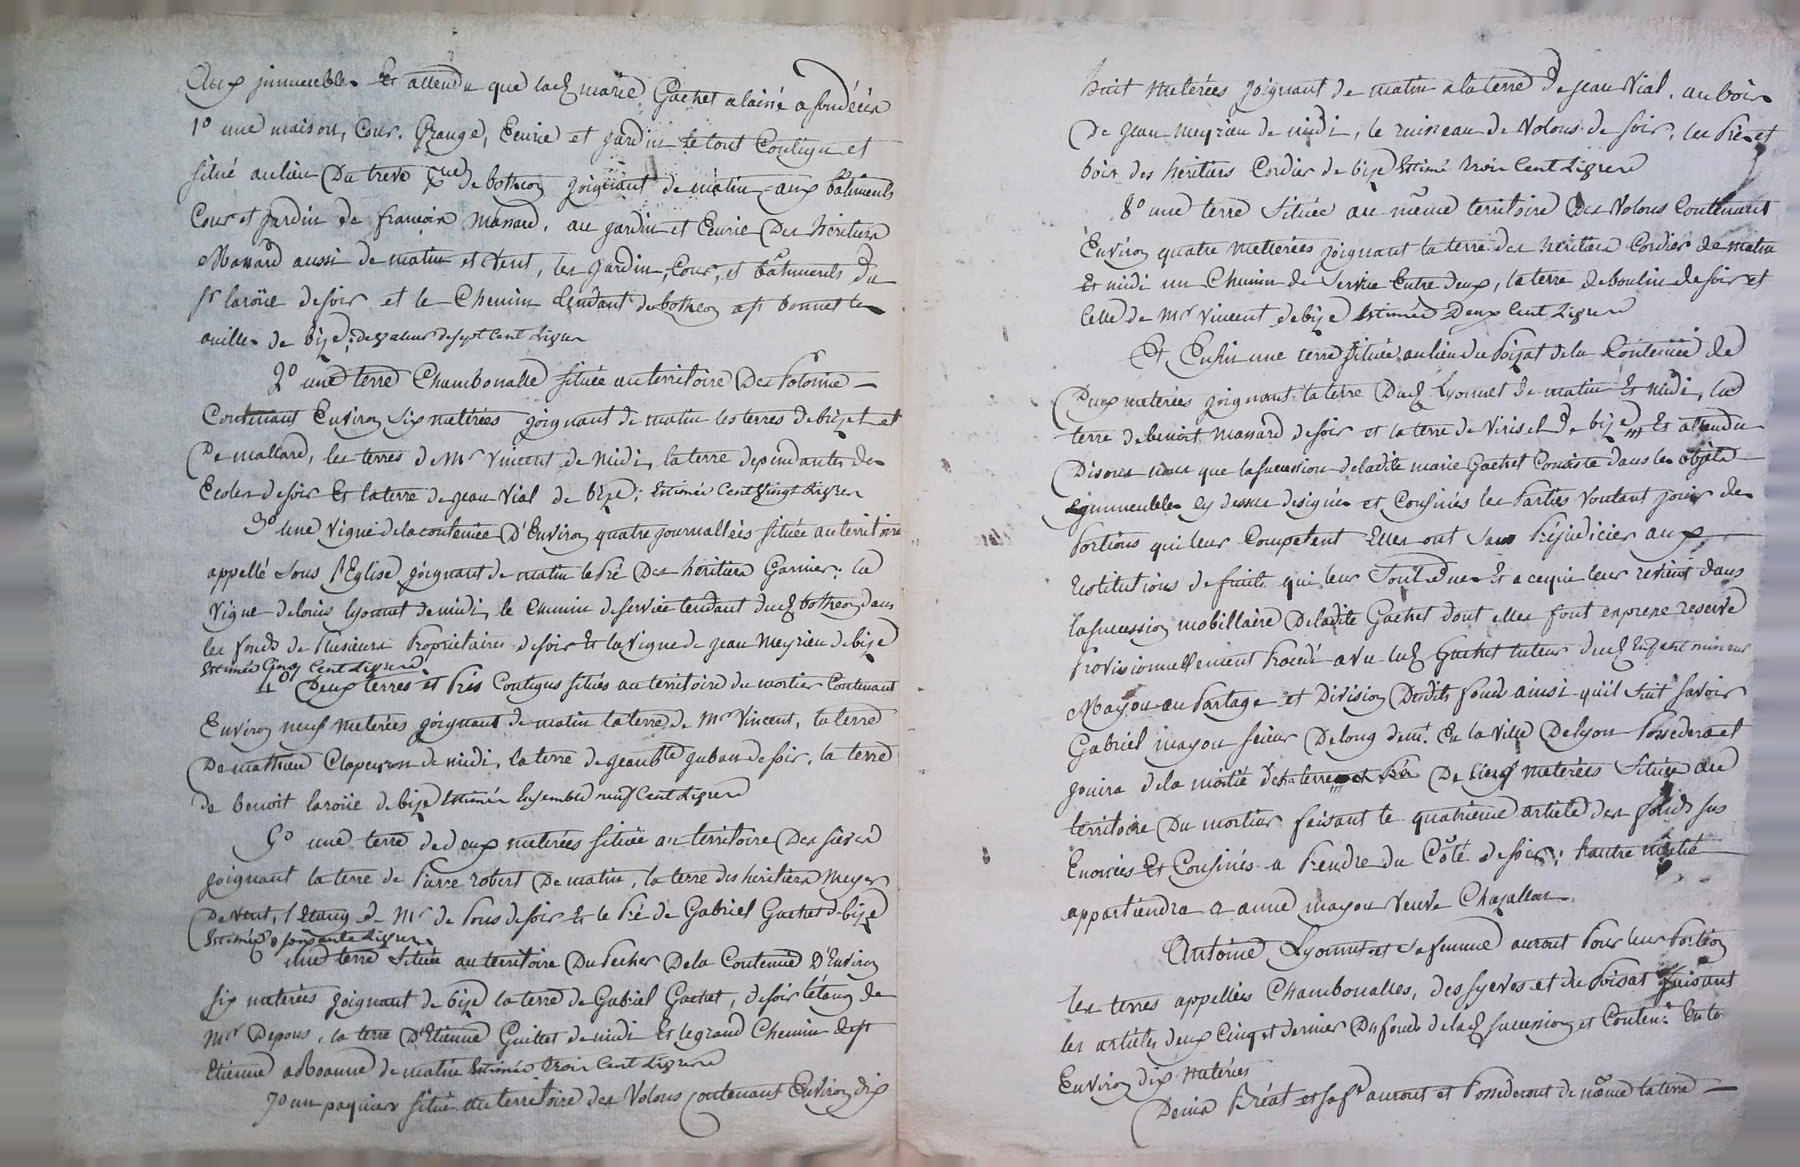 aux immeubles Et attendu que lad marie Gachet a laissé
1o une maison, Cour, Grange, Ecurie et jardin le tout Contigu et
situé au lieu Du treve de botheon joignant de matin aux bâtiments
Cour et jardin de françois massard, au jardin et Ecurie Des héritiers
Massard aussi de matin et vent, les jardin, Cour, et bâtiments du
sr laroüe de soir et le Chemin tendant de botheon a st bonnet les
ouilles de bize; de valeur de sept Cent Livres
2o une terre Chambonalle située au territoire Des
Contenant Environ six meterées joignant de matin les terres de bizet et
De mallard, les terres de Mr Vincent de midi, la terre dependante des
Ecoles de soir Et la terre de jean Vial de bize; Estimée Cent Vingt Livres
3o une Vigne de la contenüe D'Environ quatre journallées située au territoire
appellé sous l'Eglise joignant de matin le Pré Des héritiers Garnier; la
Vigne de louis lyonnet de midi, le Chemin de service tendant dud botheon dans
les fonds de Plusieurs Propriétaires de soir Et la Vigne de jean Meyrieu de bize
Estimée Cinq Cent Livres
4o Deux terres et Prés Contigus situés au territoire du mortier Contenant
Environ neuf meterées joignant de matin la terre de Mr Vincent, la terre
De mathieu Clapeyron de midi, la terre de jean bte de soir, la terre
de benoit laroüe de bize Estimée Ensemble neuf Cent Livres
5o une terre de deux meterées située au territoire Des sieves
joignant la terre de Pierre robert De matin, la terre des héritiers Meyer
De vent, l'Etang de Mr de Pons de soir Et le Pré de Gabriel Gachet de bize
Estimée soixante Livres
une terre située au territoire Du Pecher De la Contenüe D'Environ
six meterées joignant de bize la terre de Gabriel Gachet, de soir l'étang de
Mr Depons, la terre D'Etienne Guittet de midi Et le grand Chemin de st
Etienne a Roanne de matin Estimée trois Cent Livres
7o un paquier situé au territoire des Volons contenant Environ dix
huit meterées joignant de matin a la terre de jean Vial, au bois
De jean meyrieu de midi, le ruisseau de Volons de soir, les Pré et
bois des héritiers Cordier de bize Estimé trois Cent Livres
8o une terre située au même territoire Des Volons Contenant
Environ quatre metterées joignant la terre des héritiers Cordier de matin
Et midi un Chemin de Service Entre deux, la terre de boulin de soir et
Celle de Mr Vincent de bize Estimée Deux Cent Livres
Et Enfin une terre située au lieu du Poizat de la Contenüe de
Deux meterées joignant la terre Dud Lyonnet de matin Et midi, la
terre de benoit Massard de soir et la terre de de bize Et attendu
Disons nous que la succession de ladite marie Gachet Consiste dans les objets
immeubles cy dessus designés et Confinés les Parties voulant jouir des
Portions qui leur Competent Elles ont sans Préjudicier aux
restitutions de fruits qui leur sont dues Et a ce qui leur revient dans
la succession mobilliaire De ladite Gachet dont elles font expresse reserve
Provisionnellement Procédé avec led Gachet tuteur dud Enfant mineur
Mayou au Partage et Division Desdits fonds ainsi qu'il suit savoir
Gabriel mayou scieur De long demt En la Ville De lyon Possedera et
jouira de la moitié de la terre et Pré De neuf meterées Située au
territoire Du mortier faisant le quatrieme article des fonds sus
Enoncés Et Confinés a Prendre du Côté de soir; l'autre moitié
appartiendra a anne mayou Veuve Chazallon
Antoine Lyonnet et sa femme auront Pour leur Portion
les terres appellées Chambonalles, des syeves et du Poisat faisant
les articles deux Cinq et dernier Du fonds de lad succession et Content. En tt
Environ dix meterées
Denis Bréat et sa fe auront et Possederont de même la terre